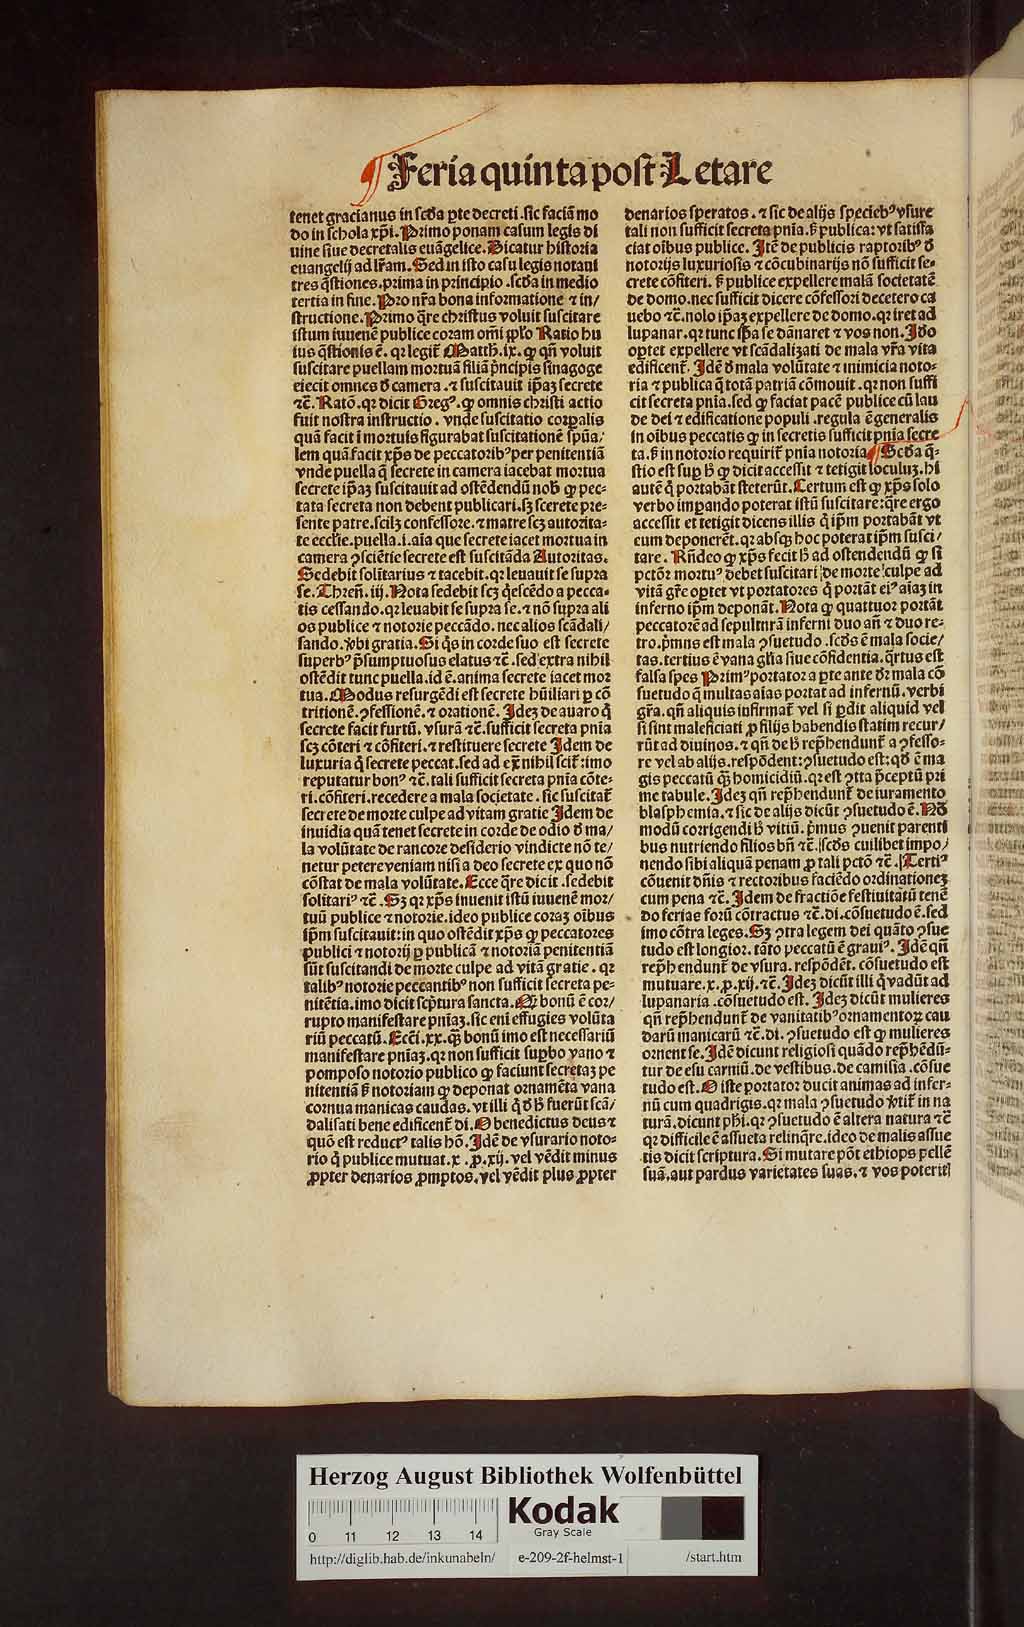 ¶ Feria quinta post Letare
tenet gracianus in scđa ꝑte decreti .sic faciā mo
do in schola xp̄i. Primo ponam casum legis di
uine siue decretalis euāgelice. Dicatur historia
euangelij ad lr̄am. Sed in isto casu legis notani
tres q̄stiones. prima in principio .scđa in medio
tertia in fine. Pro nr̄a bona informatione ⁊ in/
structione. Primo q̄re christus voluit suscitare
istum iuuenē publice coram om̄i pp̄lo Ratio hu
ius q̄stionis ē. qꝛ legit᷑ Matth. ix. ꝙ qn̄ voluit
suscitare puellam mortuā filiā p̄ncipis sinagoge
eiecit omnes đ camera .⁊ suscitauit ip̄aꝫ secrete
⁊c̄. Ratō. qꝛ dicit Gregꝰ. ꝙ omnis christi actio
fuit nostra instructio . vnde suscitatio corꝑalis
quā facit ī mortuis figurabat suscitationē sp̄ua/
lem quā facit xp̄s de peccatoribꝰ per penitentiā
vnde puella q̄ secrete in camera iacebat mortua
secrete ip̄aꝫ suscitauit ad ostēdendū nob̄ ꝙ pec-
tata secreta non debent publicari. sꝫ scerete pre-
sente patre. scilꝫ confessore. ⁊ matre scꝫ autorita-
te eccl̄ie. puella .i. aīa que secrete iacet mortua in
camera ꝯsciētie secrete est suscitāda Autoritas.
Sedebit solītarius ⁊ tacebit. qꝛ leuauit se supra
se. Thren̄. iij. Nota sedebit scꝫ q̄escēdo a pecca-
tis cessando. qꝛ leuabit se supra se. ⁊ nō supra ali
os publice ⁊ notorie peccādo. nec alios scādali/
sando. v̄bi gratia. Si q̄s in corde suo est secrete
superbꝰ p̄sumptuosus elatus ⁊c̄. sed extra nihil
ostēdit tunc puella. id ē. anima secrete iacet mor
tua. Modus resurgēdi est secrete hūiliari ꝑ cō
tritionē. ꝯfessionē. ⁊ orationē. Jdeꝫ de auaro q̄
secrete facit furtū. vsurā ⁊c̄. sufficit secreta pn̄ia
scꝫ cōteri ⁊ cōfiteri. ⁊ restituere secrete Jdem de
luxuria q̄ secrete peccat. sed ad ext̄ nihil scit᷑: imo
reputatur bonꝰ ⁊c̄. tali sufficit secreta pn̄ia cōte-
ri. cōfiteri. recedere a mala societate . sic suscitat᷑
secrete de morte culpe ad vitam gratie Jdem de
inuidia quā tenet secrete in corde de odio đ ma/
la volūtate de rancore desiderio vindicte nō te/
netur petere veniam nisi a deo secrete ex quo nō
cōstat de mala volūtate. Ecce q̄re dicit . sedebit
solitariꝰ ⁊c̄. Sꝫ qꝛ xp̄s inuenit istū iuuenē mor/
tuū publice ⁊ notorie. ideo publice coraꝫ oībus
ip̄m suscitauit: in quo ostēdit xp̄s ꝙ peccatores
publici ⁊ notorij ꝑ publicā ⁊ notoriā penitentiā
sūt suscitandi de morte culpe ad vitā gratie . qꝛ
talibꝰ notorie peccantibꝰ non sufficit secreta pe-
nitētia. imo dicit scp̄tura sancta. Qꝫ bonū ē cor/
rupto manifestare pn̄iaꝫ. sic eni effugies volūta
riū peccatū. Ecc̄i. xx. qꝫ bonū imo est necessariū
manifestare pn̄iaꝫ. qꝛ non sufficit suꝑbo vano ⁊
pomposo notorio publico ꝙ faciunt secretaꝫ pe
nitentiā ß notoriam ꝙ deponat ornamēta vana
cornua manicas caudas. vt illi q̄ đ ħ fuerūt scā/
dalisati bene edificent᷑ di. O benedictus deus ⁊
quō est reductꝰ talis hō. Jdē de vsurario noto-
rio q̄ publice mutuat. x . ꝓ. xij. vel vēdit minus
ꝓpter denarios ꝓmptos. vel vēdit plus ꝓpter
denarios speratos . ⁊ sic de alijs speciebꝰ vsure
tali non sufficit secreta pn̄ia. ß publica: vt satisfa
ciat oībus publice. Jtē de publicis raptoribꝰ đ
notorijs luxuriosis ⁊ cōcubinarijs nō sufficit se-
crete cōfiteri. ß publice expellere malā societatē
de domo. nec sufficit dicere cōfessori decetero ca
uebo ⁊c̄. nolo ip̄aꝫ expellere de domo. qꝛ iret ad
lupanar. qꝛ tunc ip̄a se dānaret ⁊ vos non. Jdo
oꝑtet expellere vt scādalizati de mala vr̄a vita
edificent᷑. Jdē đ mala volūtate ⁊ inimicia noto-
ria ⁊ publica q̄ totā patriā cōmouit . qꝛ non suffi
cit secreta pn̄ia. sed ꝙ faciat pacē publice cū lau
de dei ⁊ edificatione populi . regula ē generalis
in oībus peccatis ꝙ in secretis sufficit pn̄ia secre
ta. ß in notorio requirit᷑ pn̄ia notoria ¶ Scđa q̄-
stio est suꝑ ħ ꝙ dicit accessit ⁊ tetigit loculuꝫ. hi
autē q̄ portabāt steterūt. Certum est ꝙ xp̄s solo
verbo imꝑando poterat istū suscitare: q̄re ergo
accessit et tetigit dicens illis q̄ ip̄m portabāt vt
eum deponerēt. qꝛ absqꝫ hoc poterat ip̄m susci/
tare . Rn̄deo ꝙ xp̄s fecit ħ ad ostendendū ꝙ si
pctōr mortuꝰ debet suscitari de morte culpe ad
vitā gr̄e oꝑtet vt portatores q̄ portāt eiꝰ aīaꝫ in
inferno ip̄m deponāt. Nota ꝙ quattuor portāt
peccatorē ad sepulturā inferni duo an̄ ⁊ duo re-
tro. p̄mus est mala ꝯsuetudo . scđs ē mala socie/
tas. tertius ē vana gl̄ia siue cōfidentia. q̄rtus est
falsa spes Primꝰ portator a ꝑte ante dr̄ mala cō
suetudo q̄ multas aīas portat ad infernū. verbi
gr̄a. qn̄ aliquis infirmat᷑ vel si ꝑdit aliquid vel
si sint maleficiati ꝓ filijs habendis statim recur/
rūt ad diuinos. ⁊ qn̄ de ħ rep̄hendunt᷑ a ꝯfesso-
re vel ab alijs. respōdent: ꝯsuetudo est: qđ ē ma
gis peccatū qꝫ homicidiū. qꝛ est ꝯtra p̄ceptū pri
me tabule. Jdeꝫ qn̄ rep̄hendunt᷑ de iuramento
blasphemia. ⁊ sic de alijs dicūt ꝯsuetudo ē. Nō
modū corrigendi ħ vitiū. p̄mus ꝯuenit parenti
bus nutriendo filios bn̄ ⁊c̄. scđs cuilibet impo/
nendo sibi aliquā penam ꝓ tali pctō ⁊c̄. Tertiꝰ
cōuenit dn̄is ⁊ rectoribus faciēdo ordinationeꝫ
cum pena ⁊c̄. Jdem de fractiōe festiuitatū tenē
do ferias forū cōtractus ⁊c̄. di. cōsuetudo ē. sed
imo cōtra leges. Sꝫ ꝯtra legem dei quāto ꝯsue
tudo est longior. tāto peccatū ē grauiꝰ. Jdē qn̄
rep̄hendunt᷑ de vsura. respōdēt. cōsuetudo est
mutuare. x. ꝓ. xij. ⁊c̄. Jdeꝫ dicūt illi q̄ vadūt ad
lupanaria . cōsuetudo est. Jdeꝫ dicūt mulieres
qn̄ rep̄hendunt᷑ de vanitatibꝰ ornamentoꝝ cau
darū manicarū ⁊c̄. di. ꝯsuetudo est ꝙ mulieres
ornent se. Jdē dicunt religiosi quādo rep̄hēdū-
tur de esu carniū. de vestibus. de camisia . cōsue
tudo est. O iste portator ducit animas ad infer-
nū cum quadrigis. qꝛ mala ꝯsuetudo v̄tit᷑ in na
turā. dicunt ph̄i. qꝛ ꝯsuetudo ē altera natura ⁊c̄
qꝛ difficile ē assueta relinq̄re. ideo de malis assue
tis dicit scriptura. Si mutare pōt ethiops pellē
suā. aut pardus varietates suas. ⁊ vos poterit
Herzog August Bibliothek Wolfenbüttel
0 11 12 13 14
Kodak
Gray Scale
http://diglib.hab.de/inkunabeln/ e-209-2f-helmst-1 /start.htm